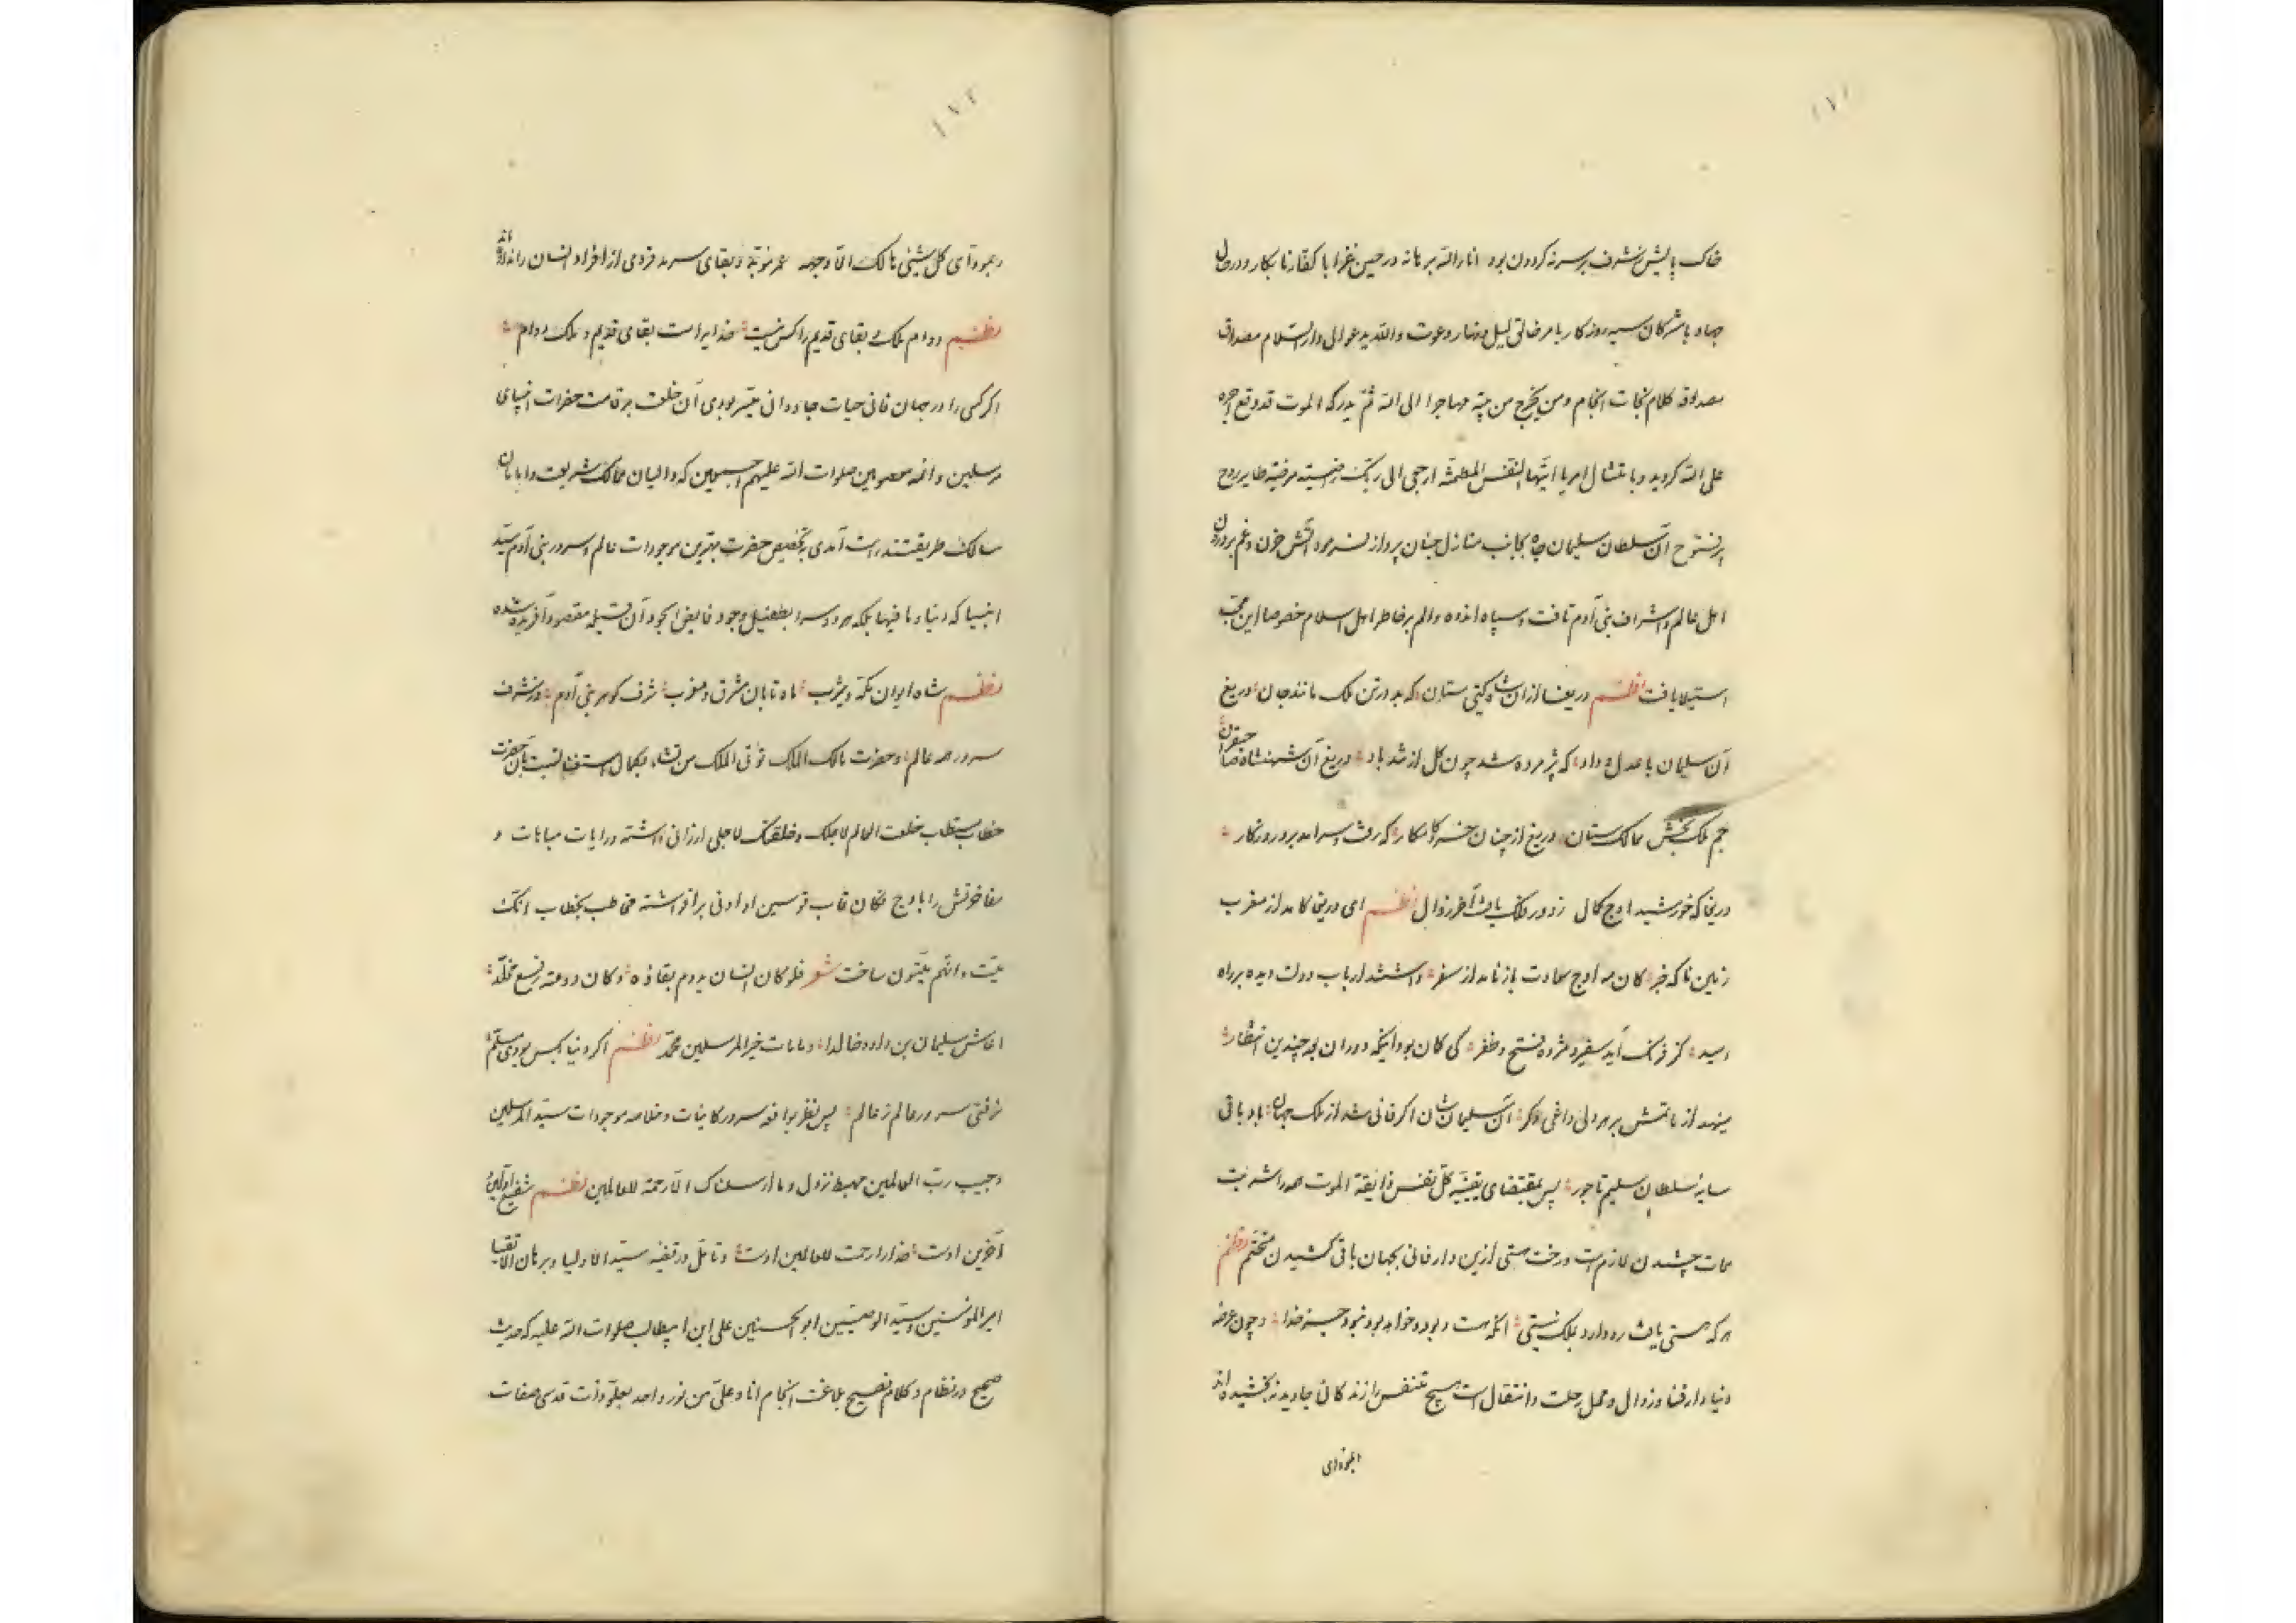 ۱۷۱
خاک پایش شرف بر سر نه کردون بود انار الله برهانه در حین غزا با کفار نابکار و در حال
جهاد با مشرکان سیه روزکار بامر خالق لیل و نهار دعوت والله یدعو الی دار السلام مصداق
مصدوقه کلام نجات انجام ومن یخرج من بیته مهاجرا الی الله ثم یدرکه الموت فقد وقع اجره
علی الله کردید و بامتثال امر یا ایتها النفس المطمئنه ارجعی الی ربک راضیة مرضیة طایر روح
پرفتوح آن سلطان سلیمان جاه بجانب منازل جنان پرواز نموده آتش حزن و غم بر درون
اهل عالم و اشراف بنی آدم تافت و سپاه اندوه و الم بر خاطر اهل اسلام خصوصا این محب
استیلا یافت نظم دریغا از ان شاه کیتی ستان که بد در تن ملک مانند جان دریغ
آن سلیمان با عدل و داد که پژمرده شد چون کل از تند باد دریغ آن شهنشاه صاحبقران
جم ملک بخش ممالک ستان دریغ از چنان خسرو کامکار که رفت و سرآمد برو روزکار
دریغا که خورشید اوج کمال ز دور فلک یافت آخر زوال نظم ای دریغا کامد از مغرب
زمین ناکه خبر کان مه اوج سعادت باز نامد از سفر داشتند ارباب دولت دیده بر راه
امید کز فرنک آید سفیر و مژده فتح و ظفر کی کمان بود اینکه دوران بعد چندین انتظار
مینهد از ماتمش بر هر دلی داغی دکر آن سلیمان شان اکر فانی شد از ملک جهان باد باقی
سایهٔ سلطان سلیم تاجور پس بمقتضای قضیه کل نفس ذایقة الموت همه را شربت
ممات چشیدن لازم است و رخت هستی ازین دار فانی بجهان باقی کشیدن متحتم نظم
هر که هستی یافت ره دارد بملک نیستی آنکه هست و بود و خواهد بود نبود جز خدا و چون عرصه
دنیا دار فنا و زوال و محل رحلت و انتقال است هیچ متنفس را زندکانی جاوید نبخشیده اند
۱۷۲
و بمودّای کل شیئی هالک الا وجهه عمر نوبة و بقای سرمد فردی از افراد انسان را نداده اند
نظم دوام ملک و بقای قدیم را کس نیست خدایراست بقای قدیم و ملک دوام
اکر کسی را در جهان فانی حیات جاودانی میسر بودی آن خلعت بر قامت حضرات انبیای
مرسلین و ائمه معصومین صلوات الله علیهم اجمعین که والیان ممالک شریعت و
سالک طریقتند راست آمدی بتخصیص حضرت بهترین موجودات عالم و سرور بنی آدم سید
انبیا که دنیا و ما فیها بلکه هر دو سرا بطفیل وجود فایض الجود آن قبله مقصود آفریده شده
نظم شاه ایوان مکه و یثرب ماه تابان مشرق و مغرب شرف کوهر بنی آدم در شرف
سرور همه عالم و حضرت مالک الملک توتی الملک من تشاء بکمال استغنا نسبت بآن حضرت
خطاب مستطاب خلقت العالم لاجلک و خلقتک لاجلی ارزانی داشته و رایات مباهات و
مفاخرتش را باوج فکان قاب قوسین او ادنی برافراشته مخاطب بخطاب انک
میّت و انّهم میّتون ساخت شعر فلو کان انسان یدوم بقاؤه و کان دوحته رفیع مخلّد
لعاش سلیمان بن داود خالدا و ما مات خیر المرسلین محمد نظم اکر دنیا بکس بودی مسلم
نرفتی سرور عالم ز عالم پس نظر بواقعه سرور کاینات و خلاصه موجودات سید المرسلین
و حبیب رب العالمین مهبط نزول وما ارسلناک الا رحمة للعالمین نظم شفیع اولین و
آخرین اوست خدا را رحمت للعالمین اوست و تامل در قضیه سید الاولیا و برهان الاتقیا
امیر المؤمنین و سید الوصیین ابو الحسنین علی ابن ابیطالب صلوات الله علیه که حدیث
صحیح درنظام و کلام فصیح بلاغت انجام انا و علی من نور واحد بعلو ذات قدسی صفات